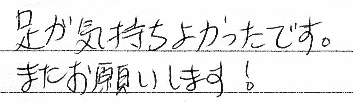 足が気持ちよかったです。
またお願いします!